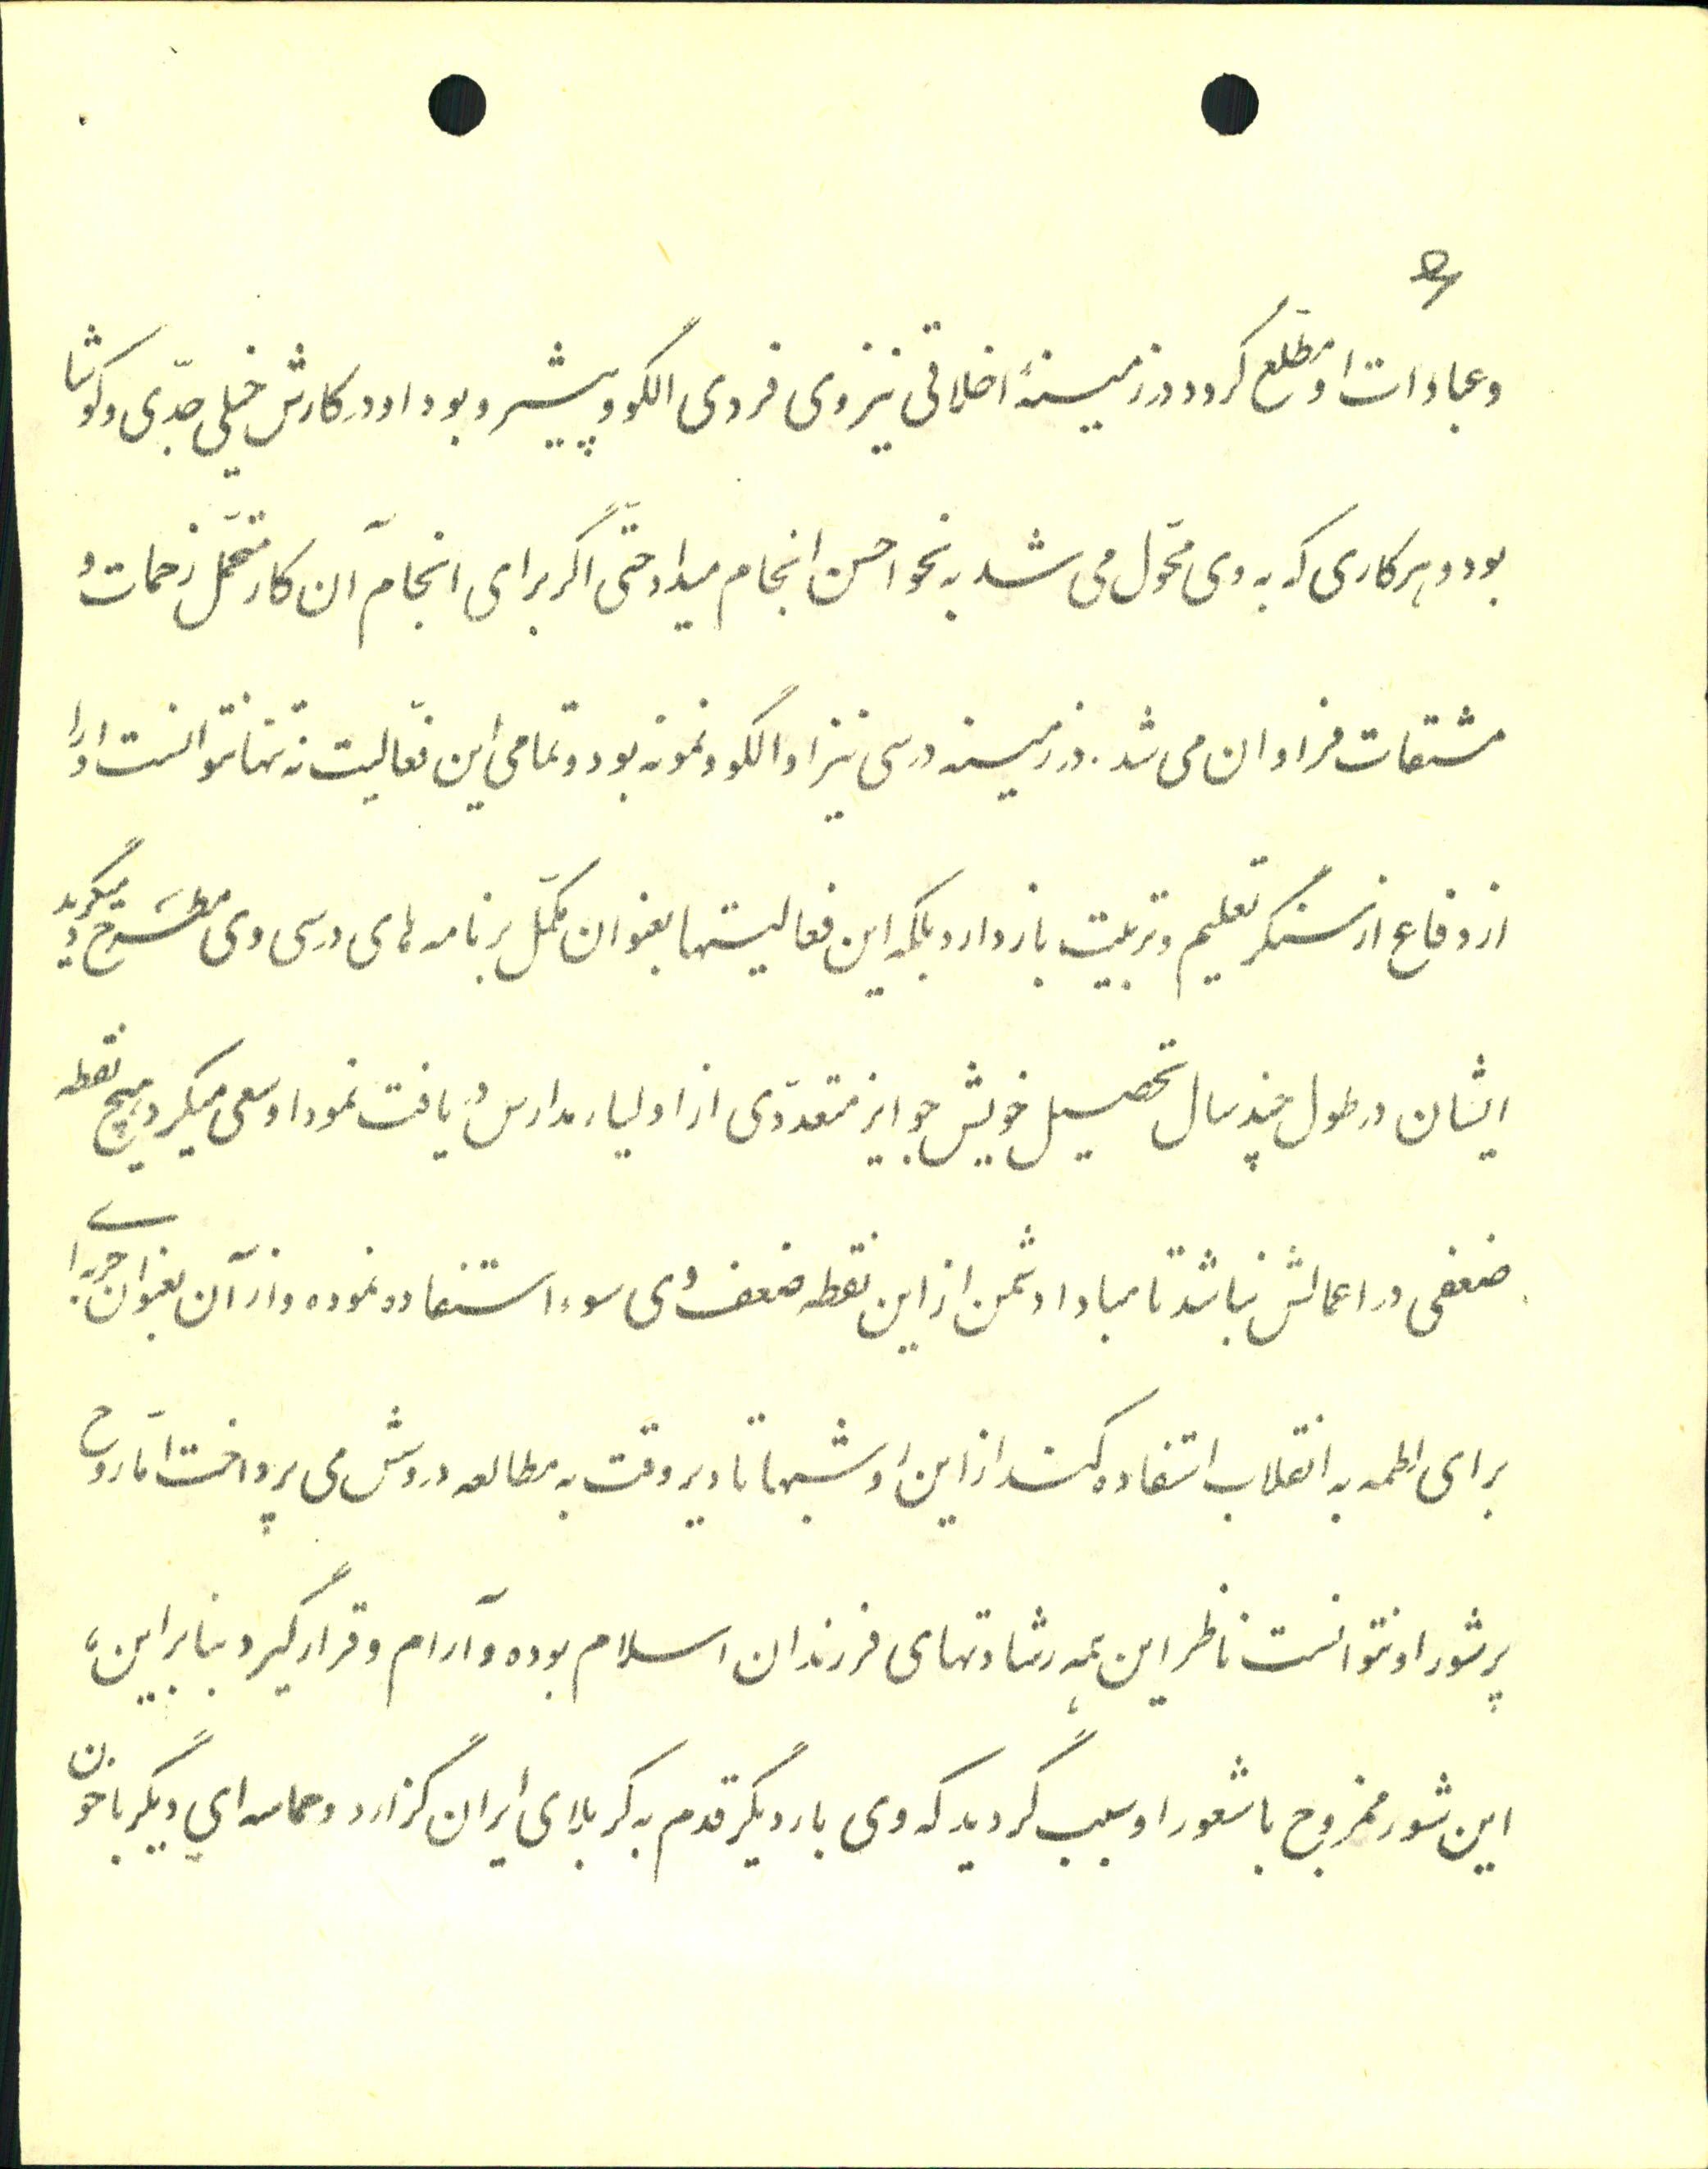 و عبادات او مطّلع کرد و در زمینهٔ اخلاقی نیز وی فردی الگو و پیشرو بود او در کارش خیلی جدّی و کوشا
بود و هر کاری که به وی محّول می شد به نحو احسن انجام میداد حتّی اگر برای انجام آن کار متحّمل زحمات و
مشقات فراوان می شد. در زمینه درسی نیز او الگو و نمونه بود و تمامی این فعّالیت نه تنها نتوانست او را
از دفاع از سنگر تعلیم و تربیت باز دارد بلکه این فعالیتها بعنوان مکمّل برنامه های درسی وی مطرح میگردید
ایشان در طول چند سال تحصیل خویش جوایز متعدّدی از اولیاء مدارس دریافت نمود او سعی میکرد هیچ نقطه
ضعفی در اعمالش نباشد تا مبادا دشمن از این نقطه ضعف وی سوء استفاده نموده و از آن بعنوان حربه ای
برای لطمه به انقلاب استفاده کند از این رو شبها تا دیر وقت به مطالعه دروسش می پرداخت امّا روح
پرشور او نتوانست ناظر این همه رشادتهای فرزندان اسلام بوده و آرام و قرار گیرد بنابراین،
این شور ممزوج با شعور او سبب گردید که وی بار دیگر قدم به کربلای ایران گزارد و حماسه ای دیگر با خون